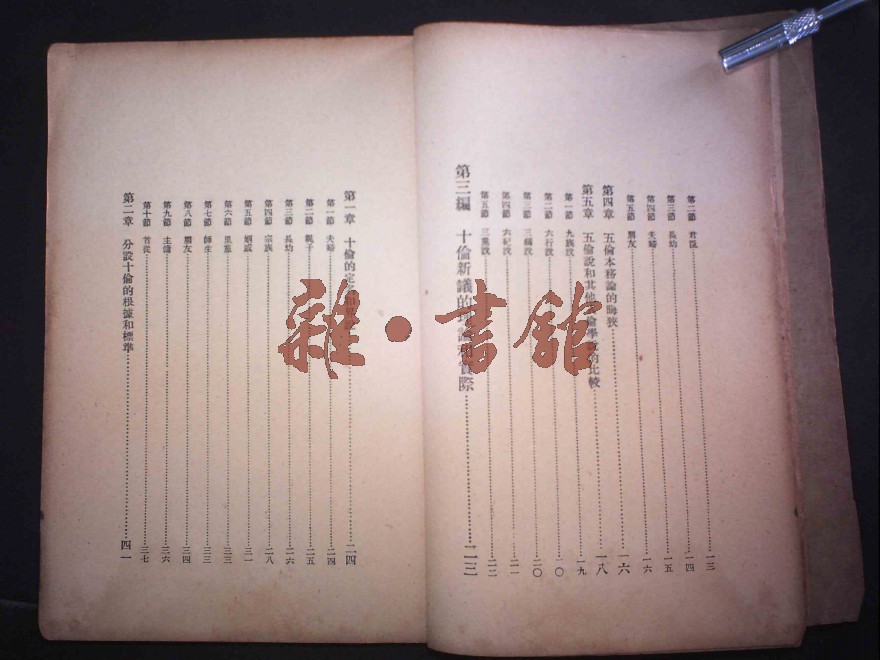 第二節 君臣 一三
第三節 長幼 一四
第四節 夫婦 一五
第五節 朋友 一六
第四章 五倫本務論的晦狹 一六
第五章 五倫說和其他 倫學 的比較 一八
第一節 九族說 一九
第二節 六行說 二〇
第三節 三綱說 二〇
第四節 六紀說 二一
第五節 三黨說 二二
第三編 十倫新議的 實際 二三
第一章 十倫的定 二四
第一節 夫婦 二四
第二節 親子 二五
第三節 長幼 二六
第四節 宗族 二八
第五節 姻戚 三一
第六節 里黨 三三
第七節 師生 三三
第八節 朋友 三四
第九節 主傭 三六
第十節 首從 三七
第二章 分設十倫的根據和標準 四一
雜·書館